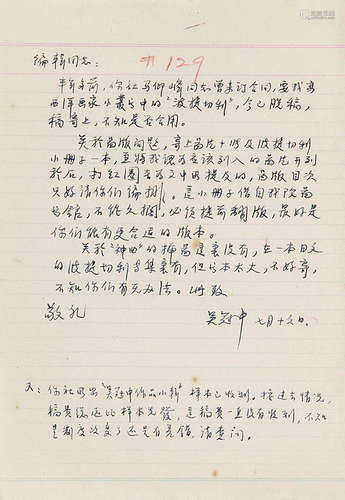 编辑同志：
#129
半年多前，你社马仰峰同志曾来订合同，要我写
西洋画家小丛书中的“波提切利”，今已脱稿，
稿寄上，不知是否合用。
关于图版问题，寄上画片十多片及波提切利
小册子一本，并将我认为应该列入的画片开列
于后，打红圈者系文中要提及的，图版目次
只好请你们编排。这小册子借自我院图
书馆，不能久搁，必须提前制版，最好是
你们能有更合适的版本。
关于“神曲”的插图这里没有，在一本日文
的波提切利专集里有，但书本太大，不好寄，
不知你们有无办法。此致
敬礼
吴冠中 七月十六日。
又：你社所出“吴冠中作品小辑”样本已收到。按过去情况，
稿费总还比样本先发，这稿费一直没有收到，不知
是制度改变了还是有差错，请查问。